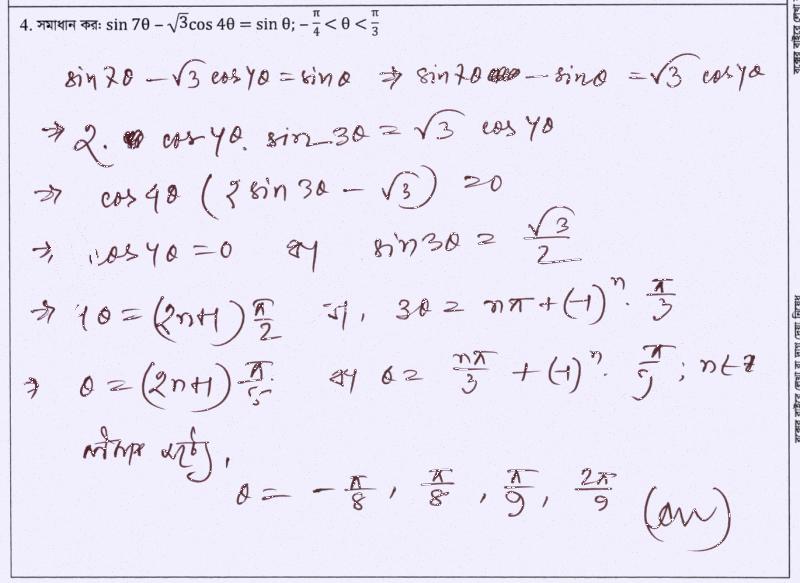 4. সমাধান কর: sin 7θ − √3 cos 4θ = sin θ; −π/4 < θ < π/3
sin 7θ − √3 cos 4θ = sin θ ⇒ sin 7θ − sin θ = √3 cos 4θ
⇒ 2. cos 4θ. sin 3θ = √3 cos 4θ
⇒ cos 4θ (2 sin 3θ − √3) = 0
⇒ cos 4θ = 0 বা sin 3θ = √3/2
⇒ 4θ = (2n+1) π/2 বা, 3θ = nπ + (−1)ⁿ. π/3
⇒ θ = (2n+1) π/8 বা θ = nπ/3 + (−1)ⁿ. π/9 ; n ∈ Z
θ = − π/8 , π/8 , π/9 , 2π/9 (Ans)